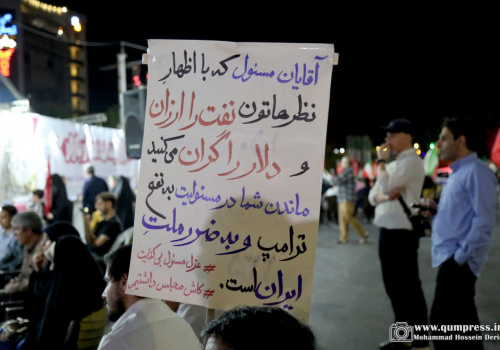 آقایان مسئول که با اظهار
نظرهاتون نفت را ارزان
و دلار را گران می‌کنید
ماندن شما در مسئولیت به نفع
ترامپ و به ضرر ملت
ایران است.
#عزل مسئول بی کفایت
#کاش مجلس داشتیم
www.qumpress.ir
Mohammad Hossein